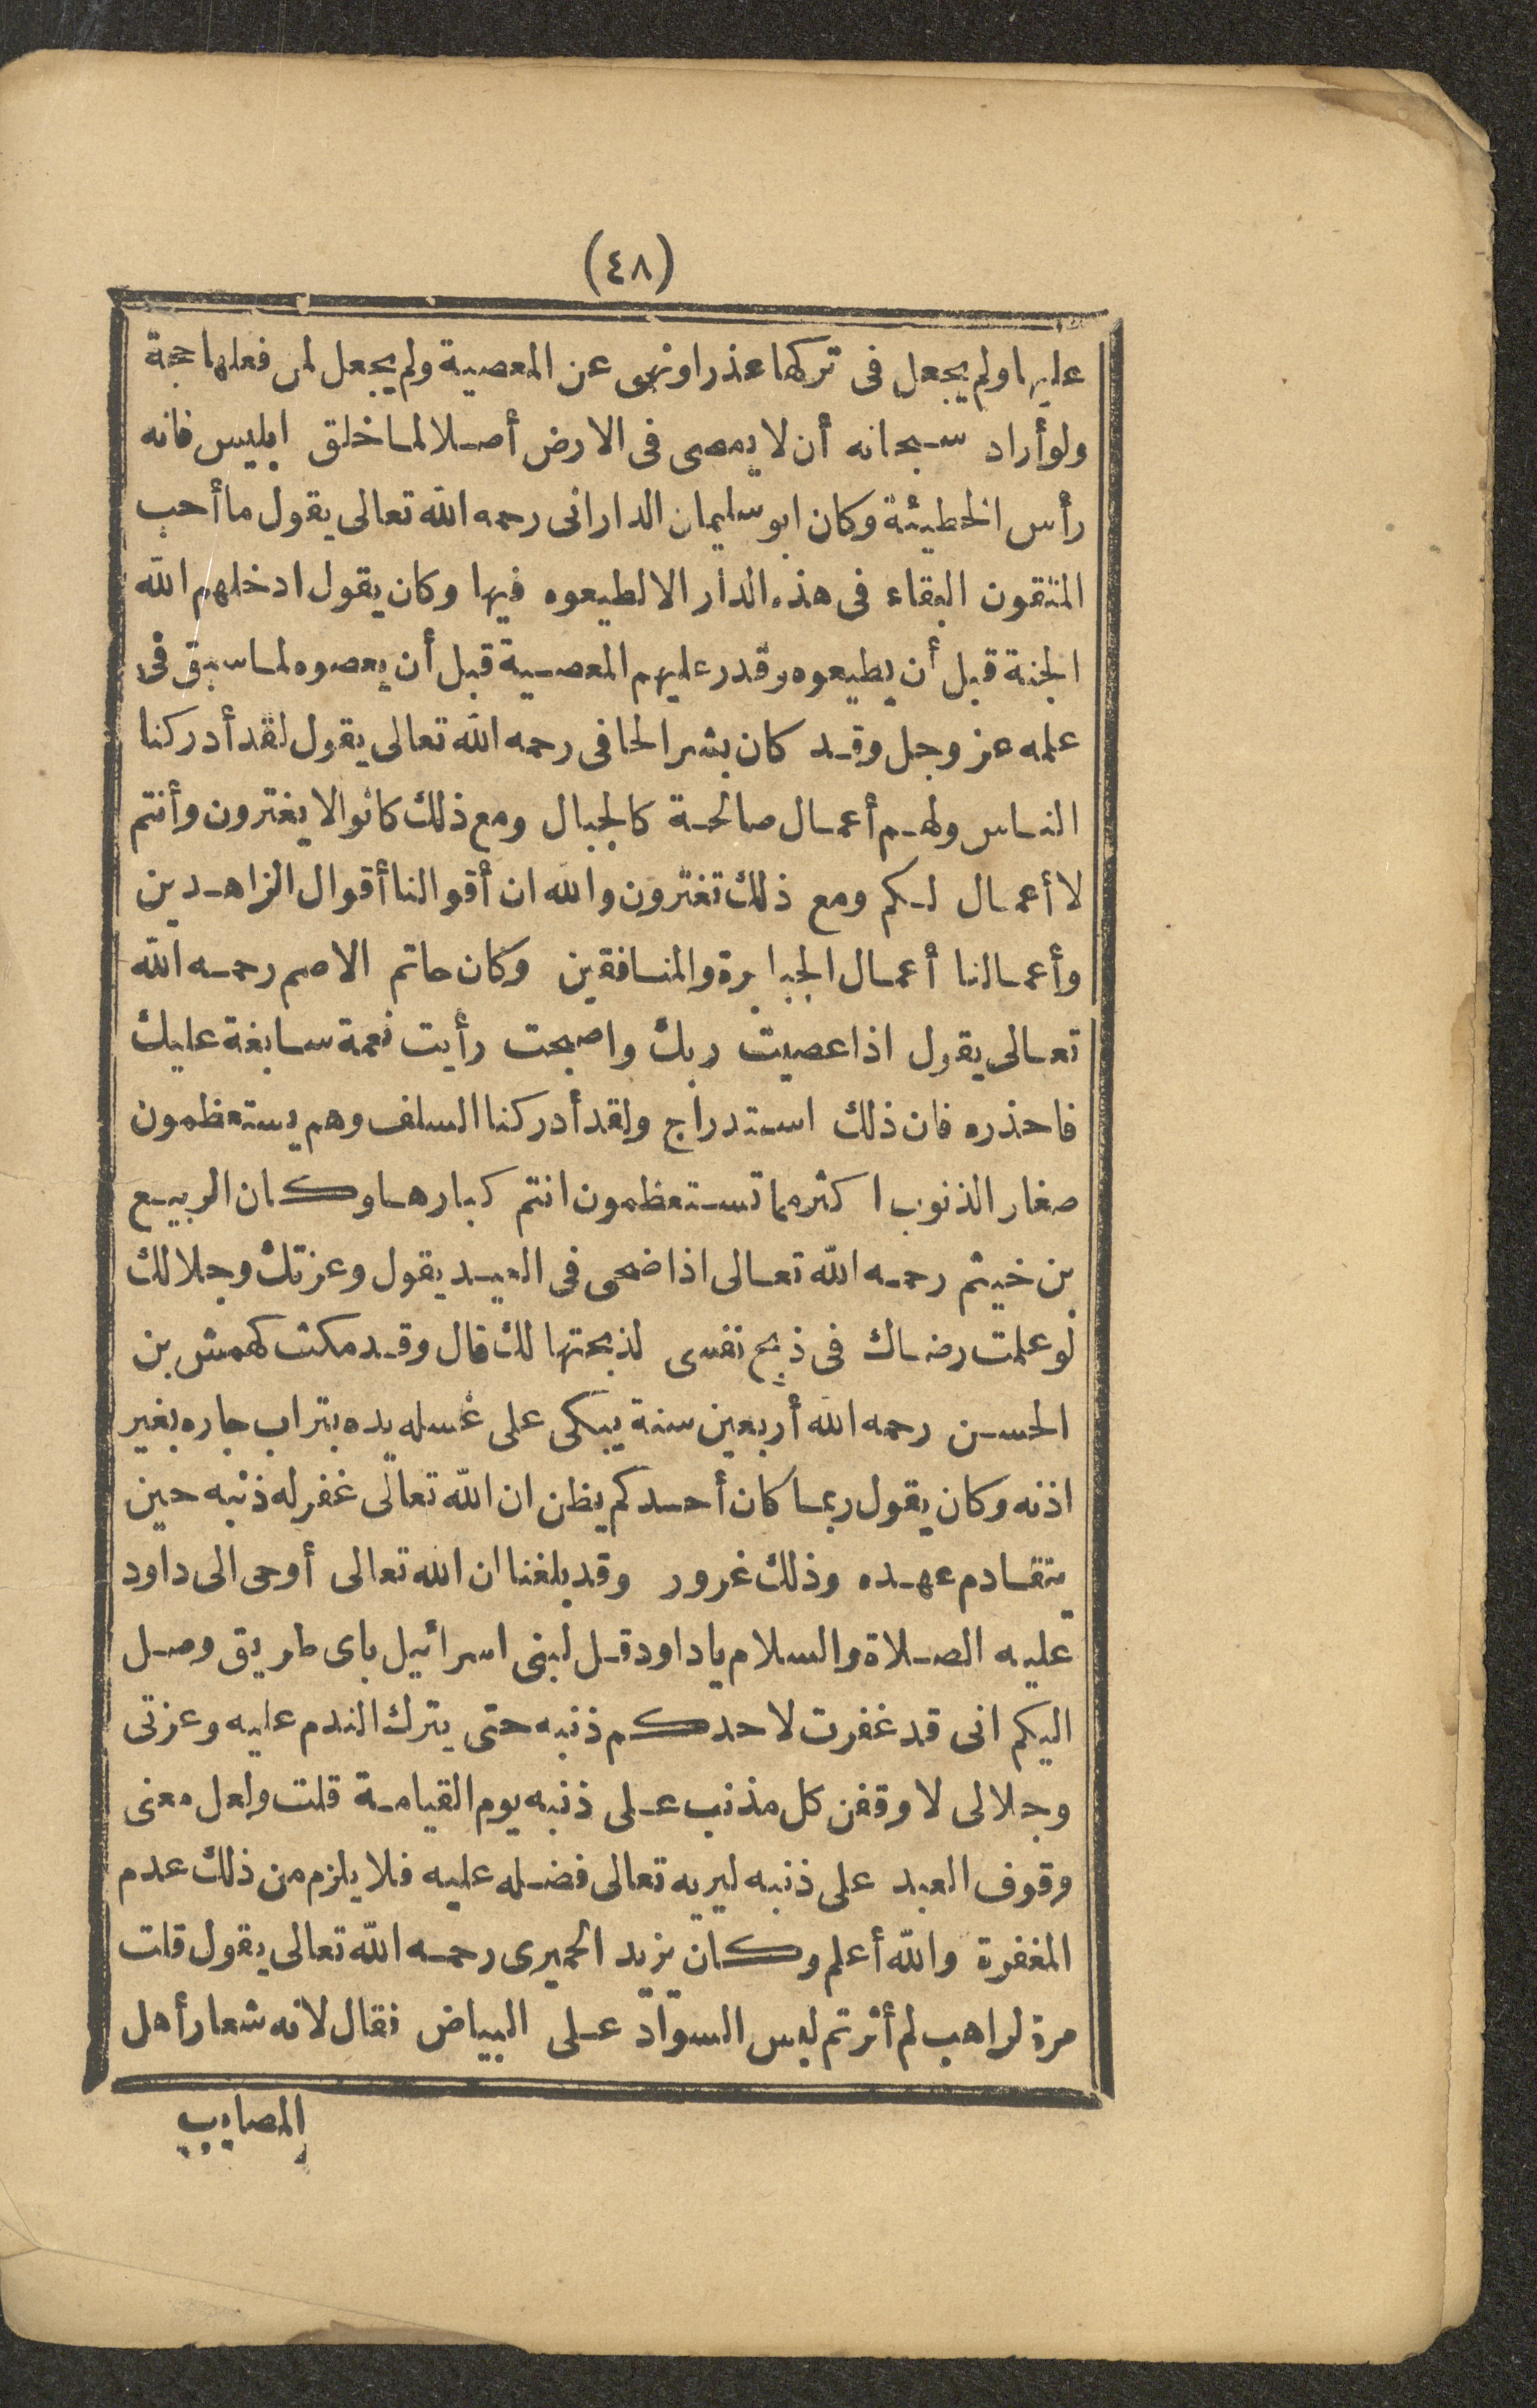 (٤٨)
عليها ولم يجعل فى تركها عذرا ونهى عن المعصية ولم يجعل لمن فعلها حجة
ولو أراد سبحانه أن لا يعصى فى الارض أصلا لما خلق ابليس فانه
رأس الخطيئة وكان ابو سليمان الدارانى رحمه الله تعالى يقول ما أحب
المتقون البقاء فى هذه الدار الا لطيعوه فيها وكان يقول ادخلهم الله
الجنة قبل أن يطيعوه وقدر عليهم المعصية قبل أن يعصوه لما سبق فى
علمه عز وجل وقد كان بشر الحافى رحمه الله تعالى يقول لقد أدركنا
الناس ولهم أعمال صالحة كالجبال ومع ذلك كانوا لا يغترون وأنتم
لا أعمال لكم ومع ذلك تغترون والله ان أقوالنا أقوال الزاهدين
وأعمالنا أعمال الجبابرة والمنافقين وكان حاتم الاصم رحمه الله
تعالى يقول اذا عصيت ربك واصبحت رأيت نعمة سابغة عليك
فاحذره فان ذلك استدراج ولقد أدركنا السلف وهم يستعظمون
صغار الذنوب اكثر مما تستعظمون انتم كبارها وكان الربيع
بن خيثم رحمه الله تعالى اذا ضحى فى العيد يقول وعزتك وجلالك
لو علمت رضاك فى ذبح نفسى لذبحتها لك قال وقد مكث كهمش بن
الحسن رحمه الله أربعين سنة يبكى على غسله يده بتراب جاره بغير
اذنه وكان يقول ربما كان أحدكم يظن ان الله تعالى غفر له ذنبه حين
يتقادم عهده وذلك غرور وقد بلغنا ان الله تعالى أوحى الى داود
عليه الصلاة والسلام يا داود قل لبنى اسرائيل باى طريق وصل
اليكم انى قد غفرت لاحدكم ذنبه حتى يترك الندم عليه وعزتى
وجلالى لاوقفن كل مذنب على ذنبه يوم القيامة قلت ولعل معنى
وقوف العبد على ذنبه ليريه تعالى فضله عليه فلا يلزم من ذلك عدم
المغفرة والله أعلم وكان يزيد الحميرى رحمه الله تعالى يقول قلت
مرة لراهب لم أثرتم لبس السواد على البياض فقال لانه شعار أهل
المصايب